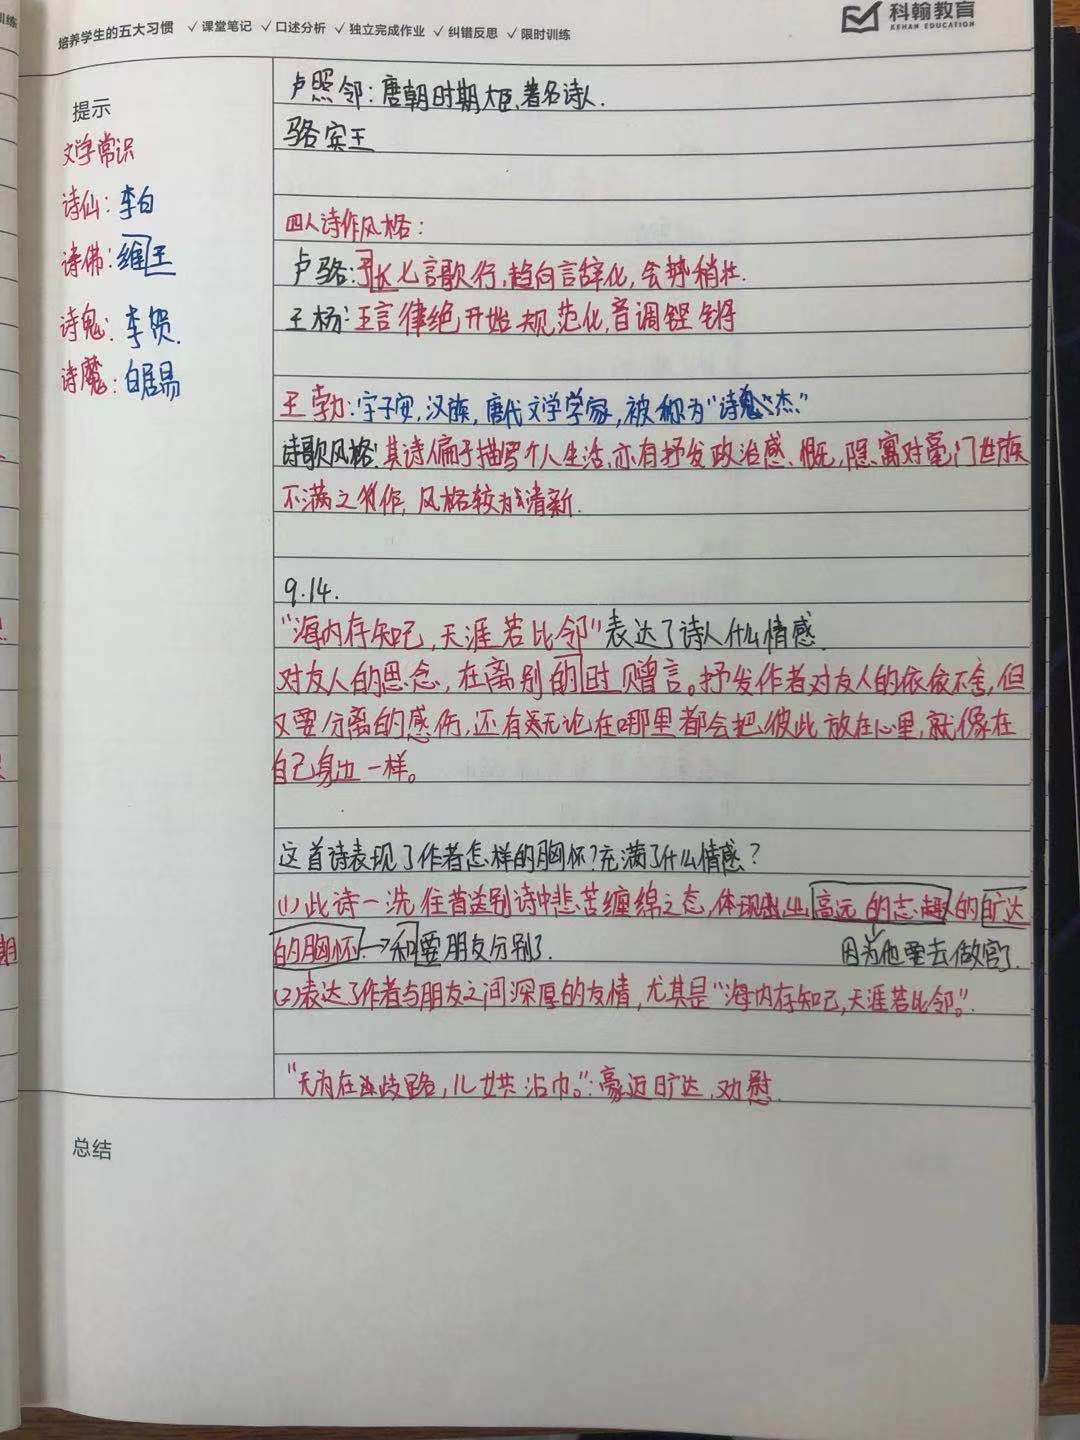 培养学生的五大习惯 ✓课堂笔记 ✓口述分析 ✓独立完成作业 ✓纠错反思 ✓限时训练
科翰教育
KEHAN EDUCATION
提示
文学常识
诗仙：李白
诗佛：维王
诗鬼：李贺.
诗魔：白居易
卢照邻：唐朝时期大臣,著名诗人.
骆宾王
四人诗作风格：
卢骆：长七言歌行,趋向言辞化,会势稍壮.
王杨：五言律绝开始规范化,音调铿锵
王勃：字子安,汉族,唐代文学学家,被称为“诗杰”
诗歌风格：其诗偏于描写个人生活,亦有抒发政治感、慨,隐寓对豪门世族
不满之作,风格较为清新.
9.14.
“海内存知己,天涯若比邻”表达了诗人什么情感.
对友人的思念,在离别的时赠言。抒发作者对友人的依依不舍,但
又要分离的感伤,还有无论在哪里都会把彼此放在心里,就像在
自己身边一样。
这首诗表现了作者怎样的胸怀?充满了什么情感?
(1)此诗一洗往昔送别诗中悲苦缠绵之态,体现出高远的志趣的旷达
的胸怀.→和要朋友分别了.
因为他要去做官了.
(2)表达了作者与朋友之间深厚的友情,尤其是“海内存知己,天涯若比邻。”
“无为在歧路,儿女共沾巾。”：豪迈旷达,劝慰.
总结